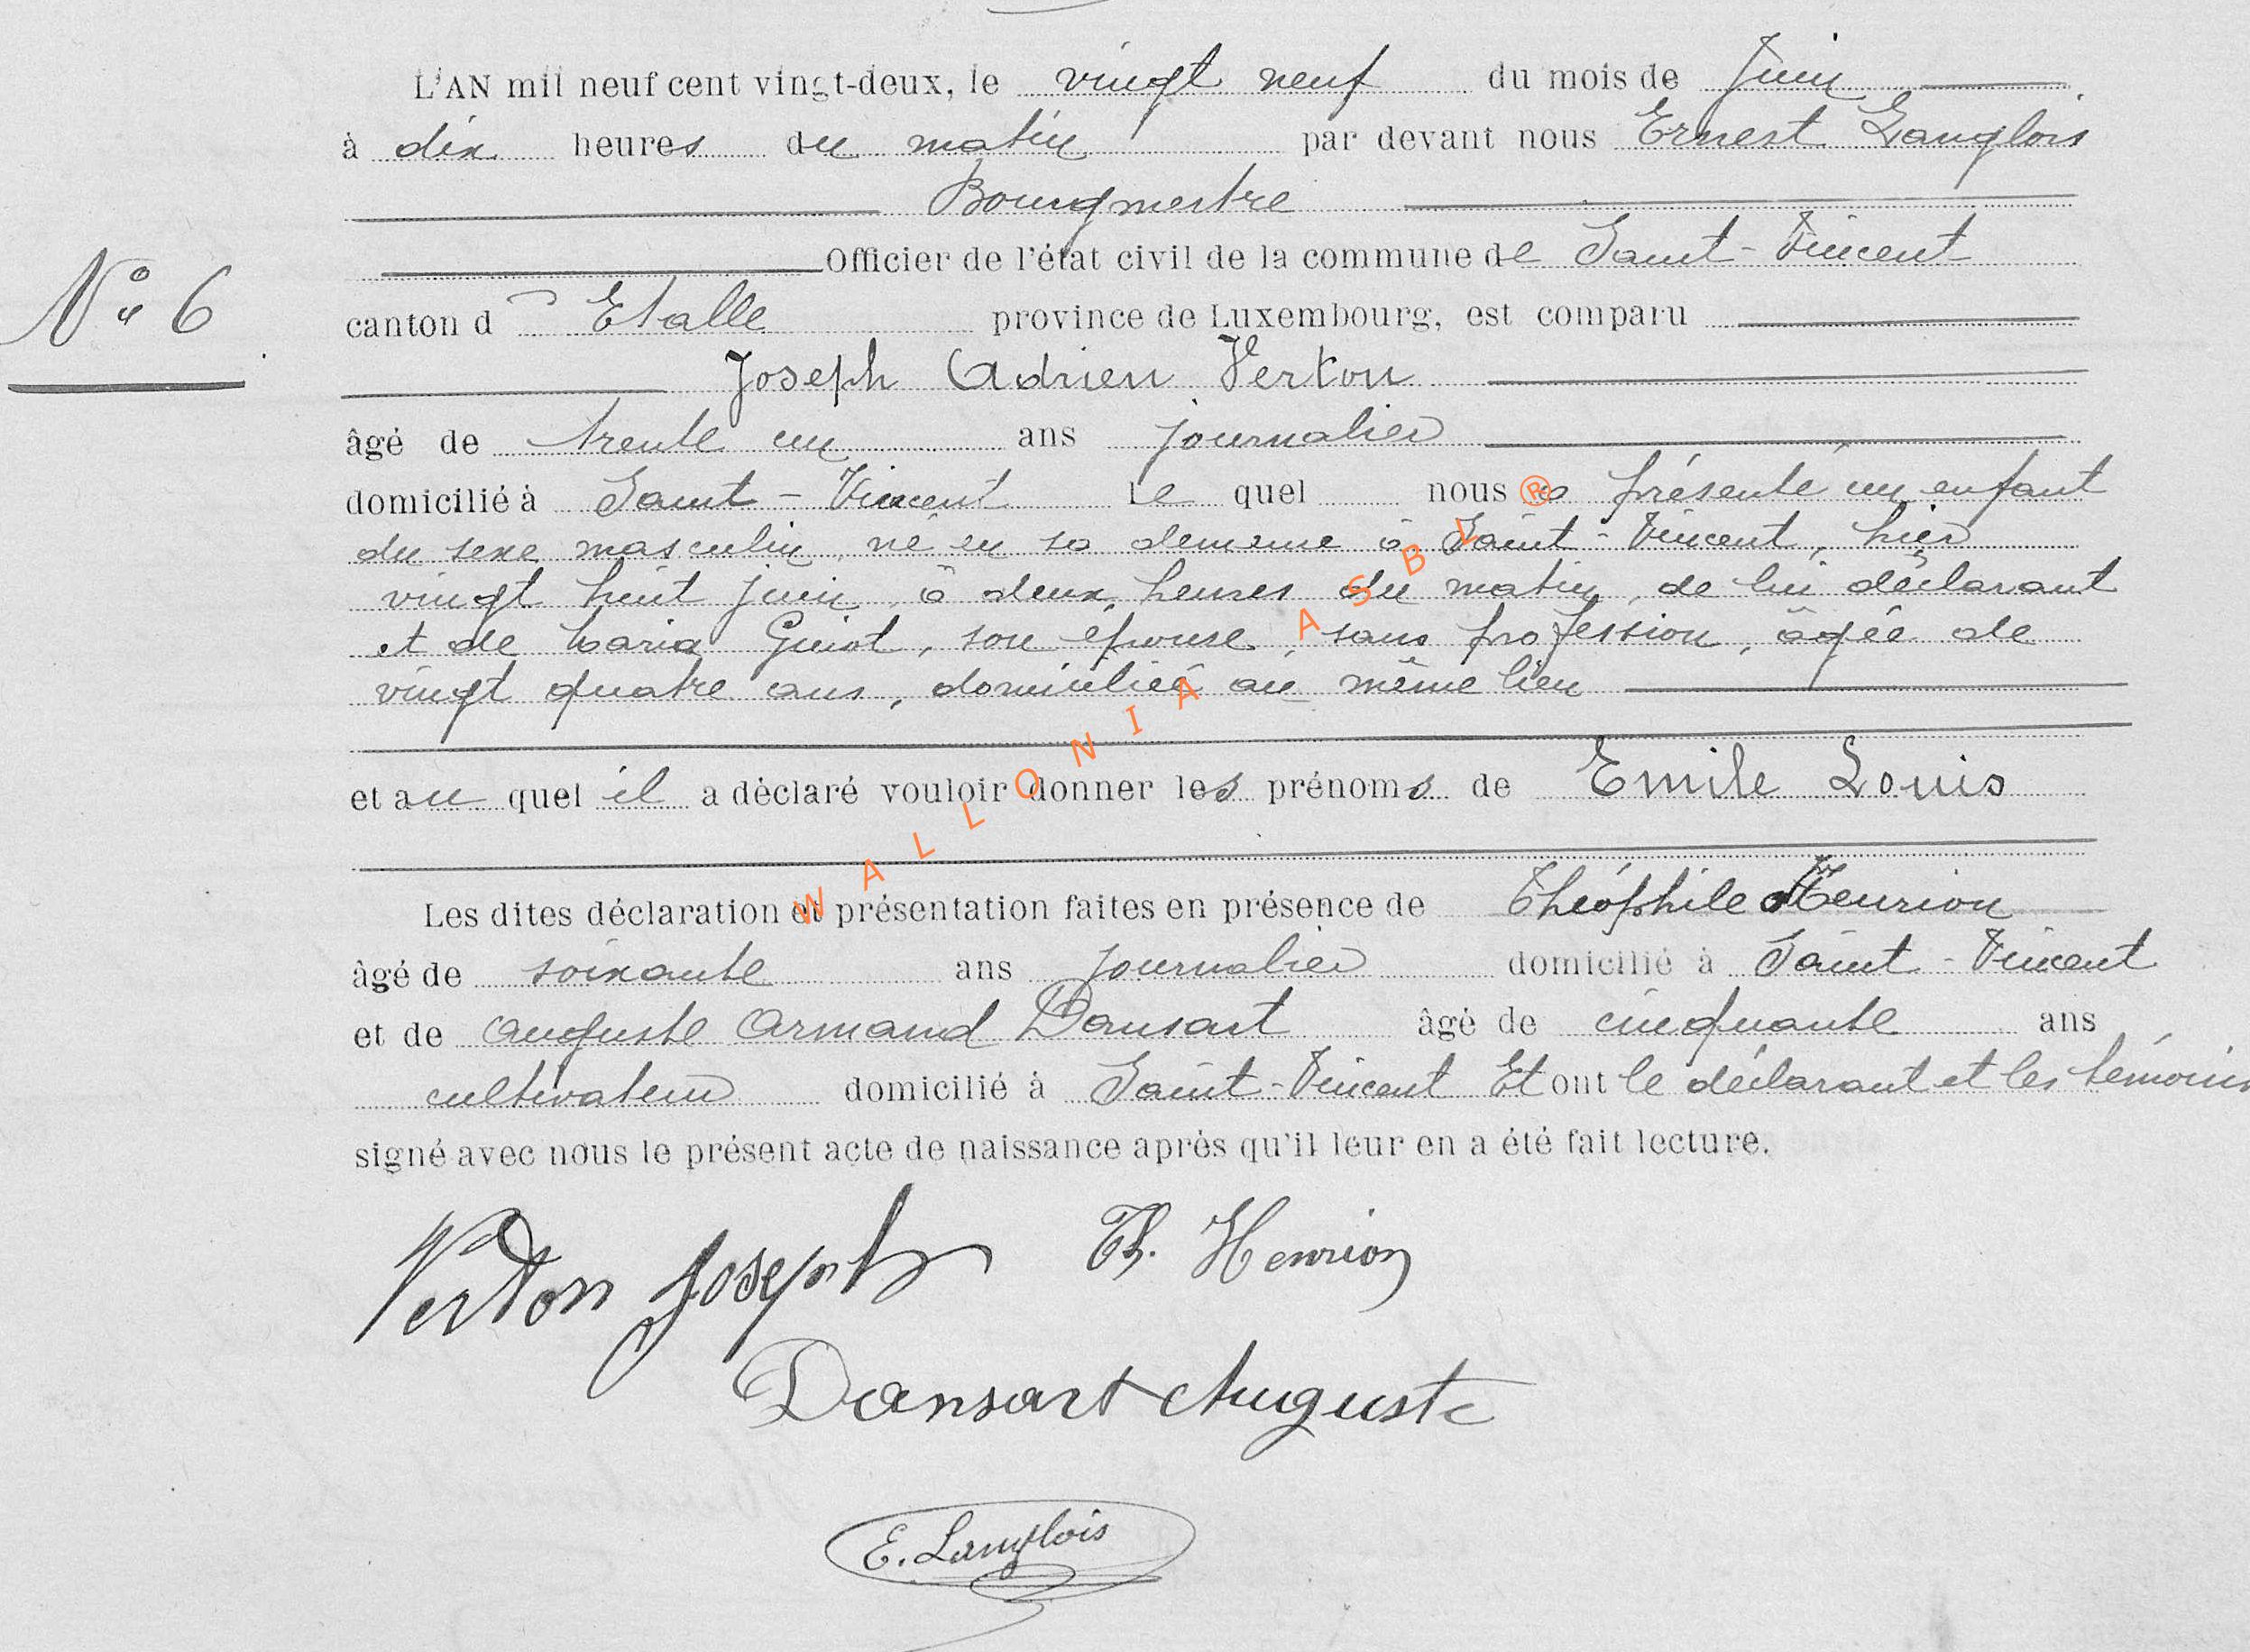 L'AN mil neuf cent vingt-deux, le vingt neuf du mois de Juin
à dix heures du matin par devant nous Ernest Langlois
Bourgmestre
Officier de l'état civil de la commune de Saint-Vincent
N° 6
canton d Etalle province de Luxembourg, est comparu
Joseph Adrien Verton
âgé de trente un ans journalier
domicilié à Saint-Vincent Le quel nous a présenté un enfant
du sexe masculin, né en sa demeure à Saint-Vincent, hier
vingt huit juin, à deux heures du matin, de lui déclarant
et de Maria Guiot, son épouse, sans profession, âgée de
vingt quatre ans, domiciliée au même lieu
et au quel il a déclaré vouloir donner les prénoms de Emile Louis
Les dites déclaration et présentation faites en présence de Théophile Henrion
âgé de soixante ans journalier domicilié à Saint-Vincent
et de Auguste Armand Dansart âgé de cinquante ans
cultivateur domicilié à Saint-Vincent Et ont le déclarant et les témoins
signé avec nous le présent acte de naissance après qu'il leur en a été fait lecture.
Verton Joseph Th. Henrion
Dansart Auguste
E. Langlois
WALLONIA ASBL ®